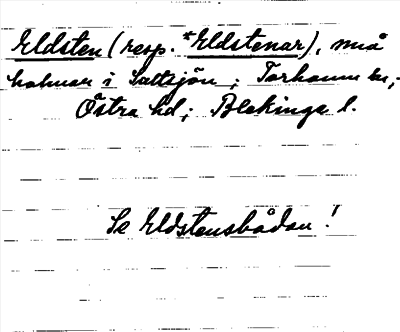 Eldsten (resp. *Eldstenar), små
holmar i Saltsjön; Torhamns sn;
Östra hd; Blekinge l.
Se Eldstensbådan!